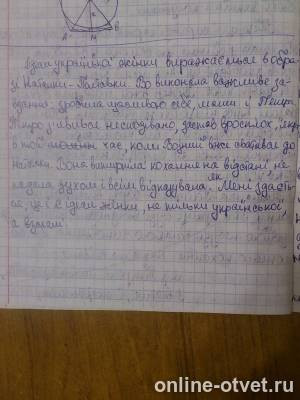 A M B
Ідеал української жінки виражається в обра-
зі Наталки-Полтавки. Во виконала важливе за-
вдання, зробила щасливою себе, маму і Петра.
Петро з'явився несподівано, застав врасплох, якраз
в той час, коли Возний вже сватався до
Наталки. Вона витримала кохання на відстані не
падала духом і всім відказувала. Мені здаєть-
ся, це і є ідеал жінки, не тільки української,
а взагалі
online-otvet.ru